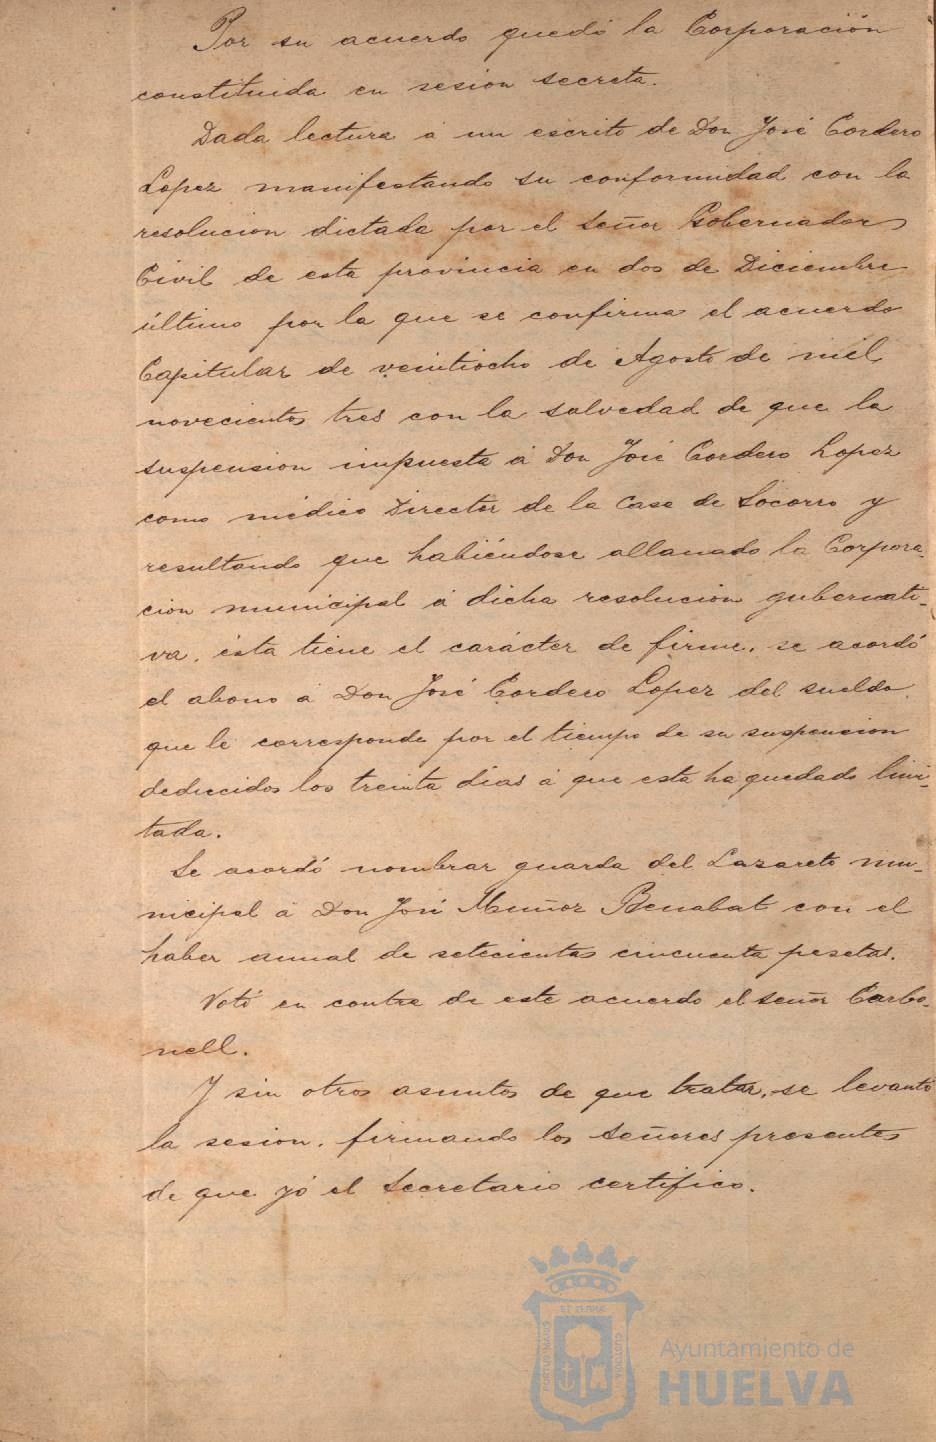 Por su acuerdo quedó la Corporación
constituida en sesion secreta.
Dada lectura á un escrito de Don José Cordero
Lopez manifestando su conformidad con la
resolucion dictada por el Señor Gobernador
Civil de esta provincia en dos de Diciembre
último por la que se confirma el acuerdo
Capitular de veintiocho de Agosto de mil
novecientos tres con la salvedad de que la
suspension impuesta á Don José Cordero Lopez
como médico Director de la Casa de Socorro y
resultando que habiéndose allanado la Corpora-
cion municipal á dicha resolucion gubernati-
va, ésta tiene el carácter de firme, se acordó
el abono á Don José Cordero Lopez del sueldo
que le corresponde por el tiempo de su suspension
deducidos los treinta dias á que esta ha quedado limi-
tada.
Se acordó nombrar guarda del Lazareto mu-
nicipal á Don José Muñoz Benabat con el
haber anual de setecientas cincuenta pesetas.
Votó en contra de este acuerdo el Señor Carbo-
nell.
Y sin otros asuntos de que tratar, se levantó
la sesion, firmando los Señores presentes
de que yó el Secretario certifico.
Ayuntamiento de
HUELVA